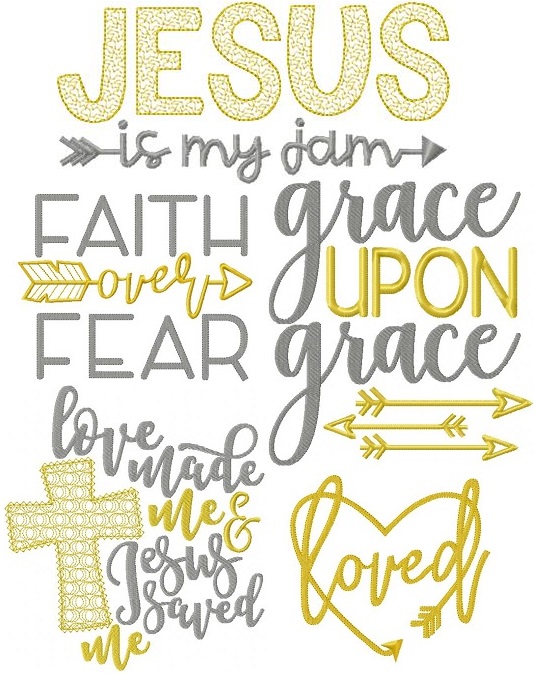 JESUS
is my jam
FAITH
over
FEAR
grace
UPON
grace
love
made
me &
Jesus
saved
me
loved